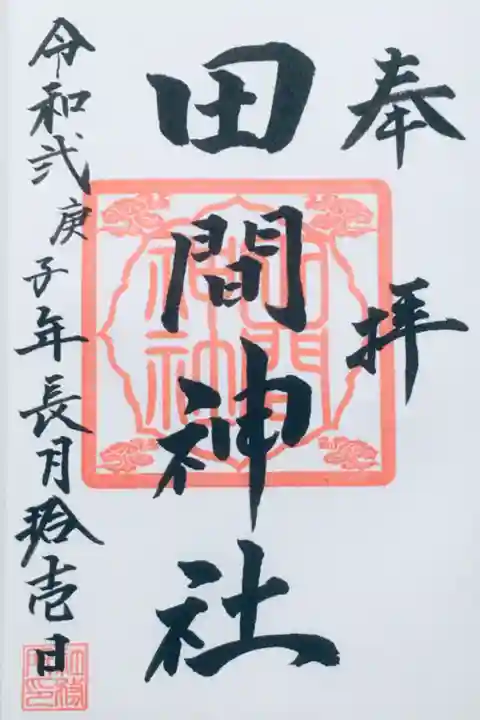 奉拝
田間神社
令和弐庚子年長月拾壱日
田間神社